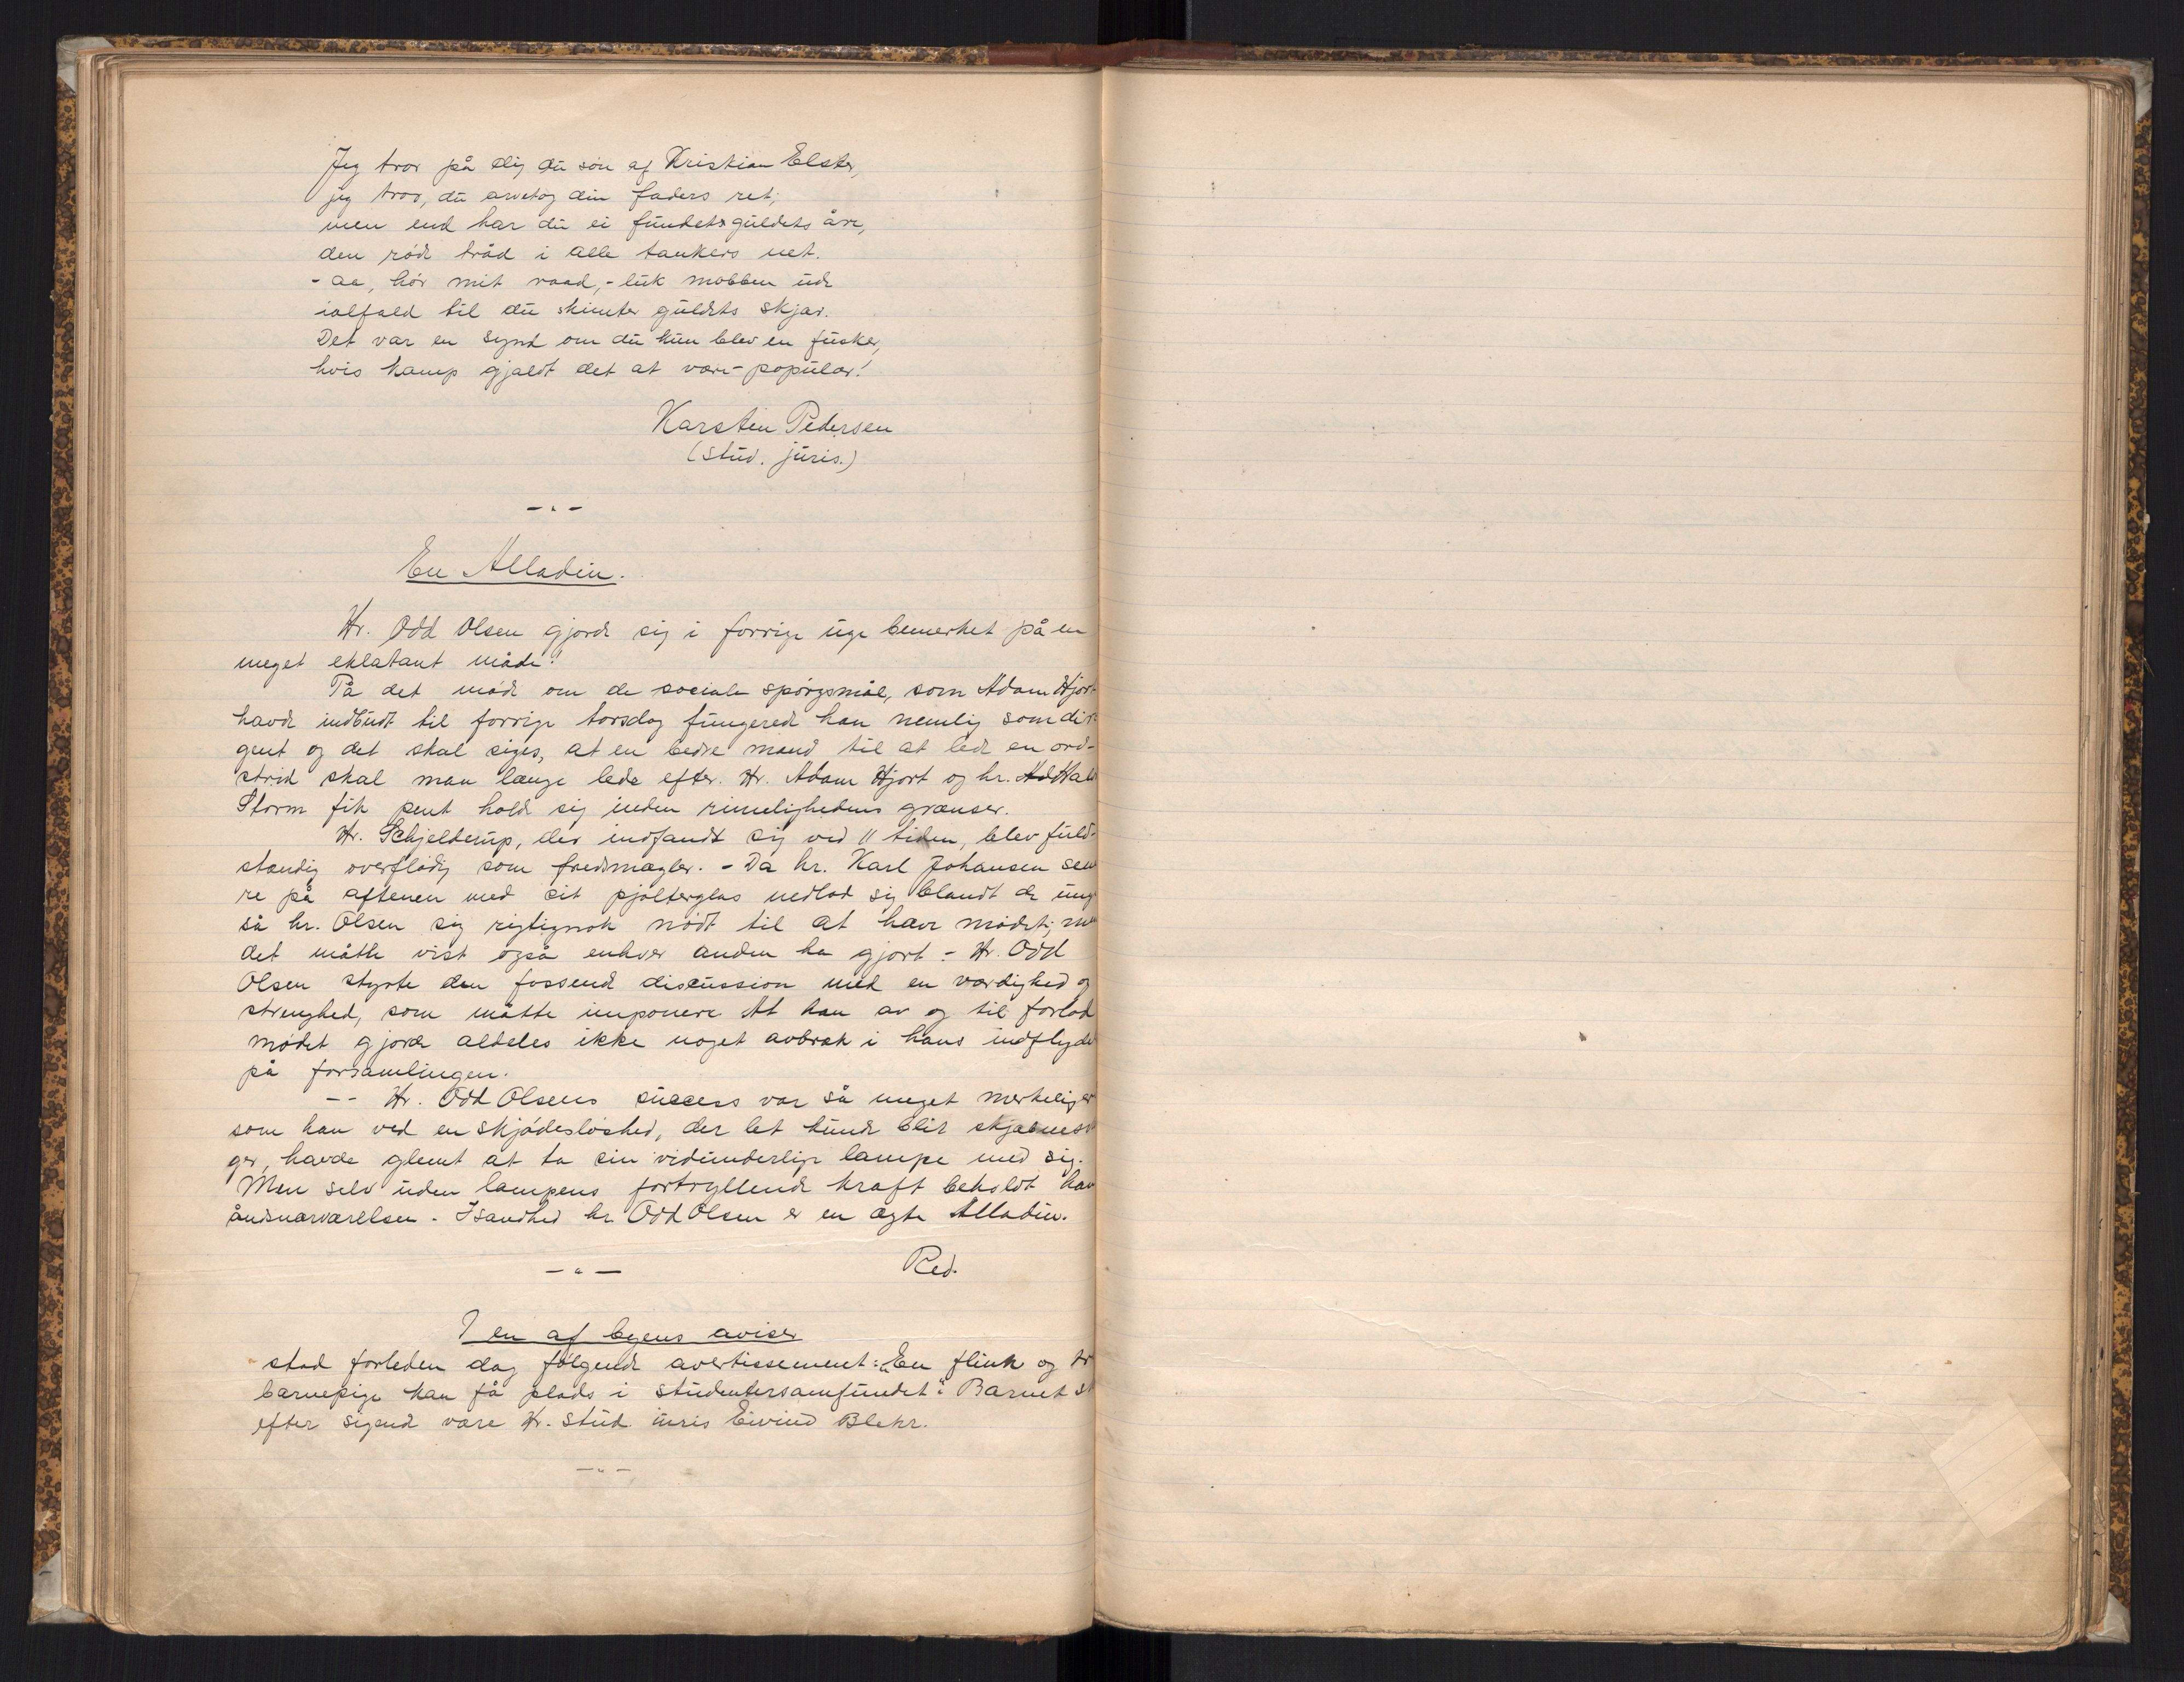 Jeg tror på dig du søn af Kristian Elster,
jeg tror, du arvetog din faders ret;
men end har du ei fundet guldets åre,
den røde tråd i alle tankers net.
- aa, hør mit raad, - luk mobben ude
ialfald til du skimter guldets skjær.
Det var en synd om du kun blev en fusker,
hvis kamp gjaldt det at være - populær!
Karsten Pedersen
(stud. juris.)
- " -
En Alladin.
Hr. Odd Olsen gjorde sig i forrige uge bemerket på en
meget eklatant måde!
På det møde om de sociale spørgsmål, som Adam Hjort
havde indbudt til forrige torsdag fungerede han nemlig som diri
gent og det skal siges, at en bedre mand til at lede en ord-
strid skal man længe lede efter. Hr. Adam Hjort og hr.
Storm fik pent holde sig inden rimelighedens grænser.
Hr. Schjelderup, der indfandt sig ved 11 tiden, blev fuld-
stændig overflødig som fredsmægler. - Da hr. Karl Johansen sene
re på aftenen med sit pjolterglas nedlod sig blandt de unge
så hr. Olsen sig rigtignok nødt til at hæve mødet; men
det måtte vist også enhver anden ha gjort. - Hr. Odd
Olsen styrte den fossende discussion med en værdighed og
strenghed, som måtte imponere At han av og til forlod
mødet gjorde aldeles ikke noget avbræk i hans indflydel
på forsamlingen.
-- Hr. Odd Olsens success var så meget merkeliger
som han ved en skjødesløshed, der let kunde blit skjæbnesv
ger, havde glemt at ta sin vidunderlige lampe med sig.
Men selv uden lampens fortryllende kraft beholdt han
åndsnærværelsen. - Isandhed hr. Odd Olsen er en ægte Alladin.
- " -
Red.
I en af byens aviser
stod forleden dag følgende avertissement: "En flink og
barnepige kan få plads i studentersamfundet". Barnet
efter sigende være Hr. stud. iuris Eivind Blehr.
- " -